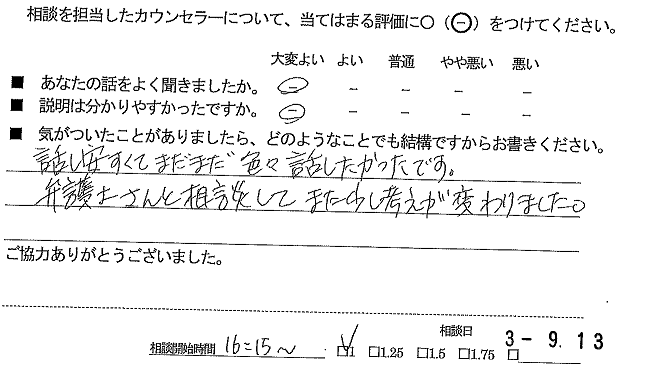 相談を担当したカウンセラーについて、当てはまる評価に○（⊖）をつけてください。
大変よい よい 普通 やや悪い 悪い
■ あなたの話をよく聞きましたか。 ⊖ − − − −
■ 説明は分かりやすかったですか。 ⊖ − − − −
■ 気がついたことがありましたら、どのようなことでも結構ですからお書きください。
話し安すくてまだまだ色々話したかったです。
弁護士さんと相談して また少し考えが変わりました。
ご協力ありがとうございました。
相談日 3-9.13
相談開始時間 16:15〜 ☑1 □1.25 □1.5 □1.75 □